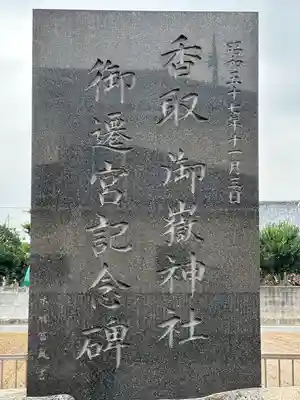 昭和五十七年十一月三日
香取御嶽神社
御遷宮記念碑